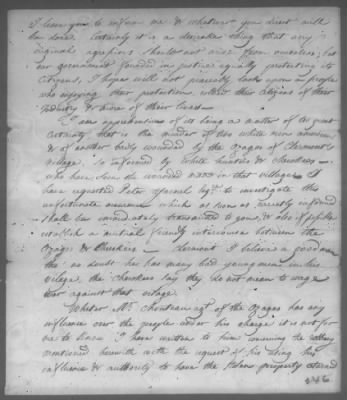 I leave you to inform me & whatever you direct will
be done. Certainly it is a desirable thing that any
original agression should not arise from ourselves; but
our government founded in justice equally protecting its
citizens, I hope will not peaceably look upon a people
who enjoying their protection robbed their citizens of their
industry & some of their lives.
I am apprehensive of its being a matter of too great
certainty that is the murder of two white men
& of another badly wounded by the Osages of Clermont's
village, so informed by White hunters & Cherokees
who have seen the wounded man in that village. I
have requested Peter Esqr. to investigate this
unfortunate which as soon as correctly informed
shall be immediately transmitted to you, & also if possible
establish a mutual friendly intercourse between the
Osages & Cherokees. Clermont I believe a good man
tho no doubt he has many bad young men in his
village, the Cherokees say they do not mean to wage
war against that village.
Whether Mr. Chouteau agt. of the Osages has any
influence over the people under his charge it is not for
me to I have written to him concerning the robbery
mentioned herewith with the request of his using his
influence & authority to have the stolen property returned